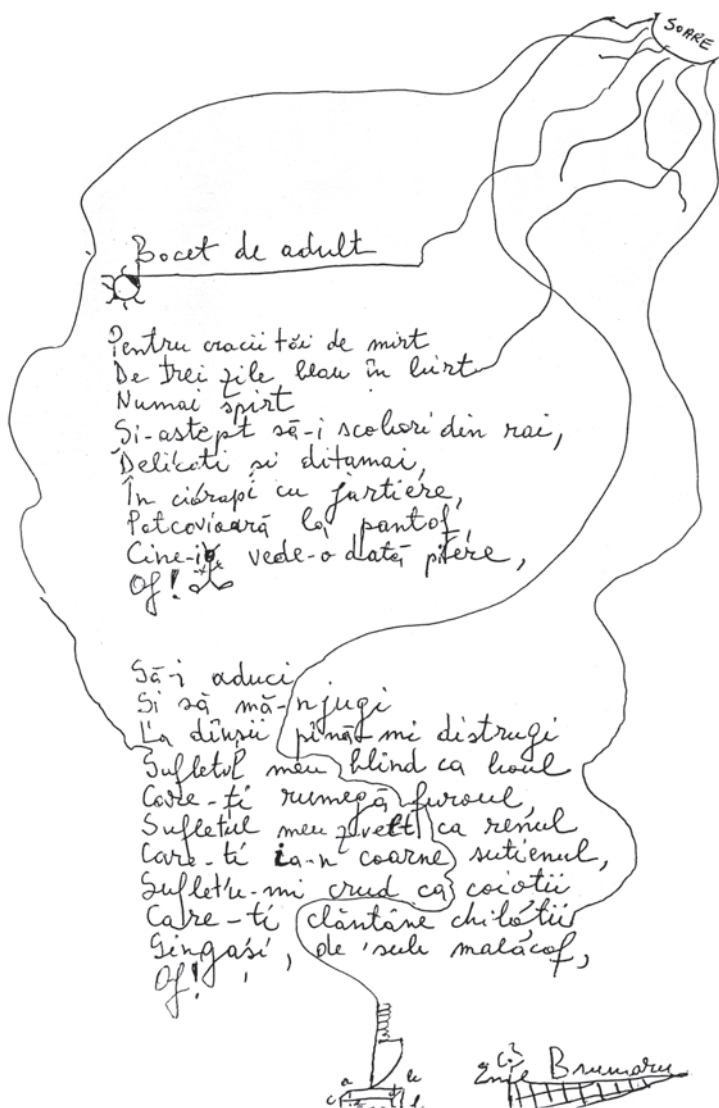 SOARE
Bocet de adult
Pentru cracii tăi de mirt
De trei zile beau în birt
Numai spirt
Si-astept să-i scobori din rai,
Delicati si ditamai,
În ciorapi cu jartiere,
Potcovioară la pantof,
Cine-i vede-o dată piere,
Of!
Să-i aduci
Si să mă-njugi
La dînsii pînă-mi distrugi
Sufletul meu blînd ca boul
Care-ti rumegă furoul,
Sufletul meu zvelt ca renul
Care-ti ia-n coarne sutienul,
Sufletu-mi crud ca coiotii
Care-ti clăntăne chilotii
Gingasi, de sub malacof,
Of!
a
c
Emil Brumaru